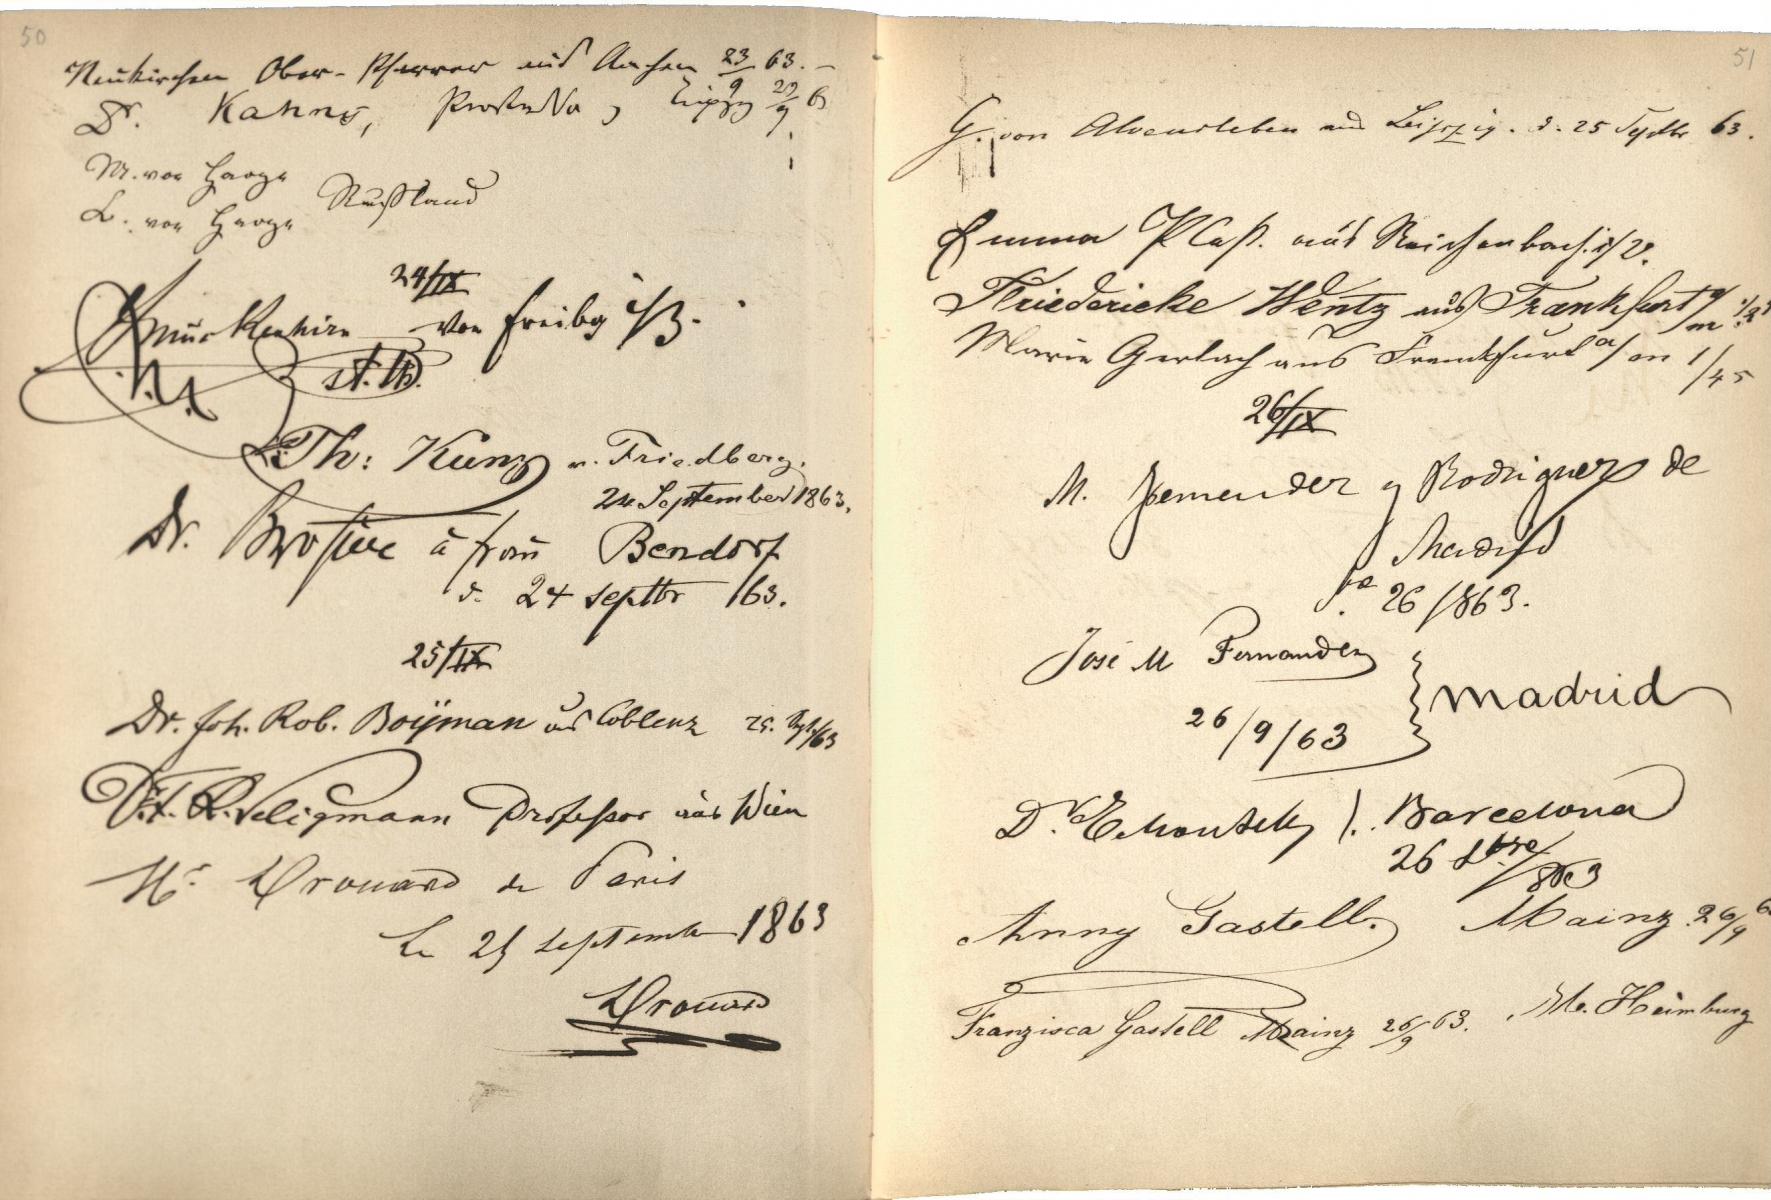 50
Neukirchen Ober-Pfarrer aus Aachen 23/9 63.
Dr. Kahnis, Leipzig 23/9 63
M. von
L. von
Rußland
24/IX
von Freibg i/B.
st. th.
Th: Kunz v. Friedberg.
24 September 1863.
Dr. Brosius & frau Bendorf
d. 24 septbr 63.
25/IX
Dr. Joh. Rob. Boijman aus Coblenz 25. Sept/63
Dr. F. R. Seligmann Professor aus Wien
Mr Drouard de Paris
Le 25 septembre 1863
Drouard
51
G. von Alvensleben aus Leipzig. d. 25 Septbr 63.
Emma Plaß. aus Reichenbach i/V.
Friedericke Wentz aus Frankfurt a/m
Marie Gerlach aus Frankfurt a/m 1/45
26/IX
M. y Rodriguez de
Madrid
26/863.
José M Fernandez
26/9/63
Madrid
Dr. Barcelona
26 Sbre/863
Anny Gastell. Mainz 26/9 63
Franzisca Gastell Mainz 26/9 63. Heimburg